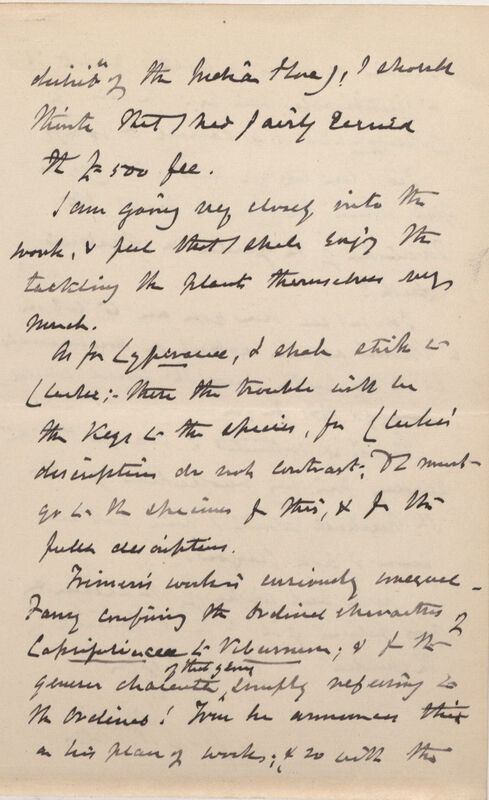 distribn of the Indian Flora), I should
think that I had fairly earned
the £500 fee.
I am going very closely into the
work, & feel that I shall enjoy the
tackling the plants themselves very
much.
As for Cyperaceae, I shall stick to
Clarke;- there the trouble will be
the Keys to the species, for Clarke's
descriptions do not contrast; & I must
go to the specimens for this, & for the
fuller descriptions.
Trimen's work is curiously unequal -
Fancy confining the ordinal characters of
Caprifoliaceae to Viburnum; & for the
generic character of that genus, simply referring to
the ordinal! True he announces this
in his plan of works; & so with the